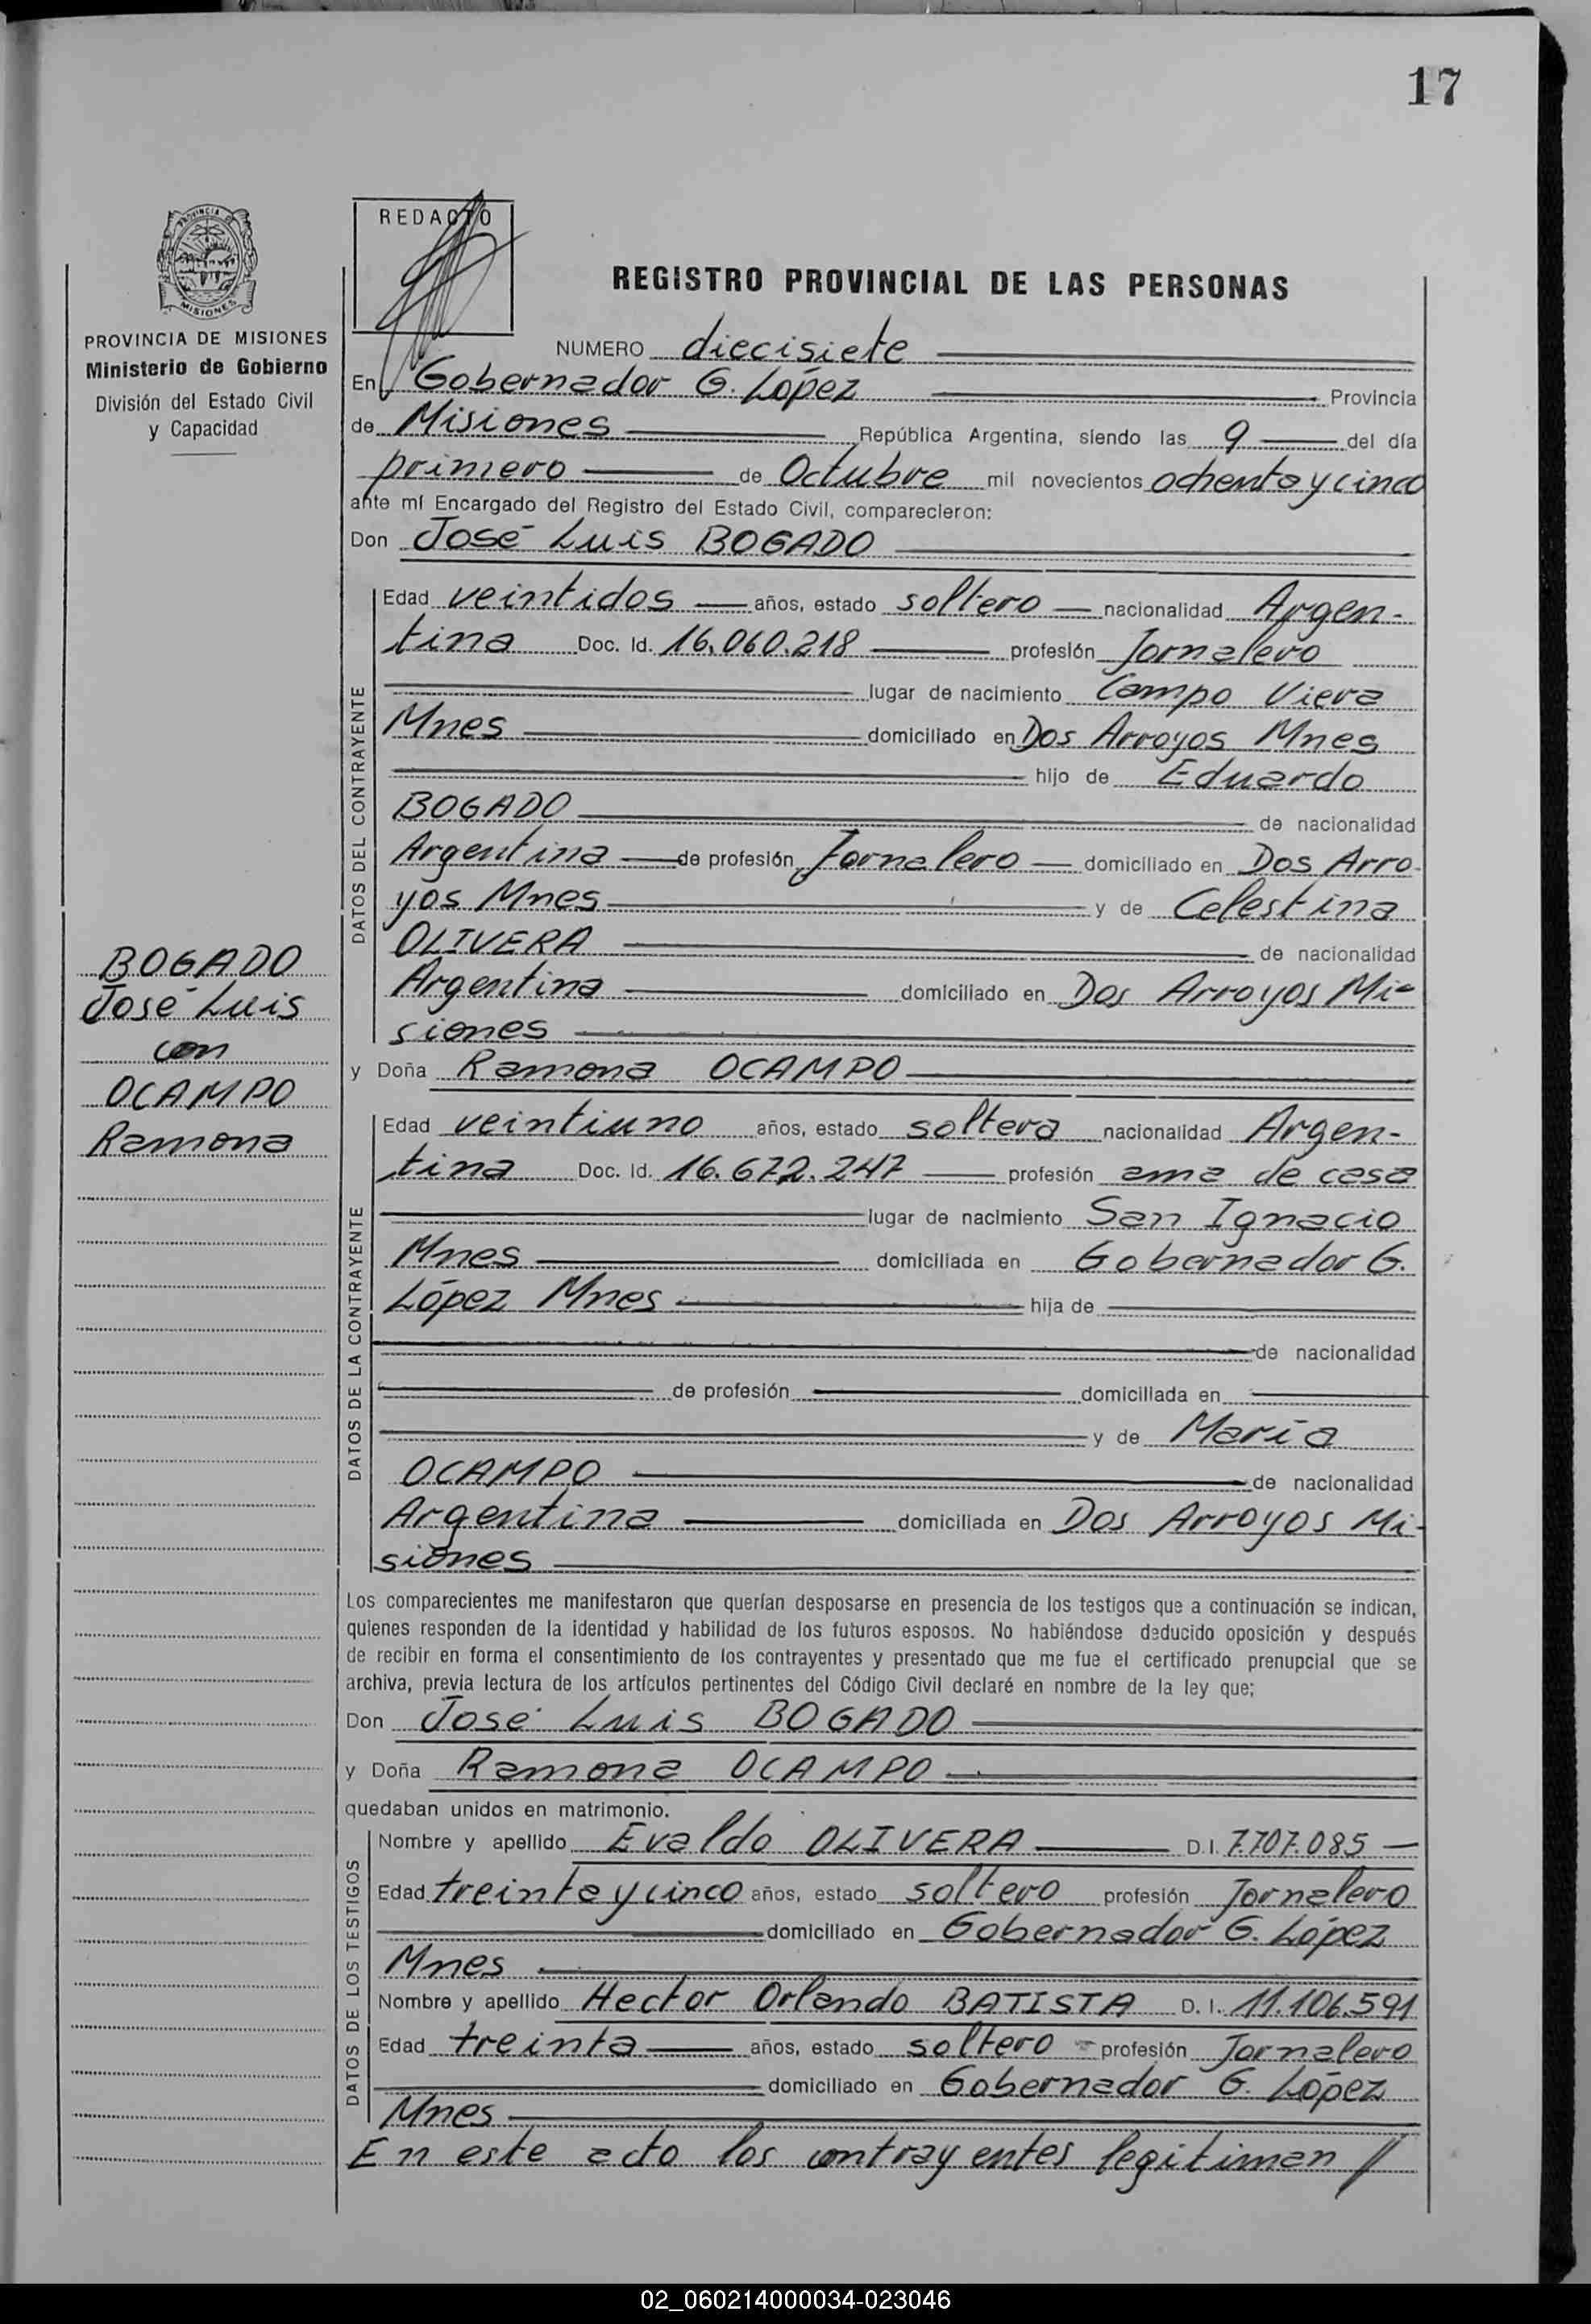 17
PROVINCIA DE
MISIONES
PROVINCIA DE MISIONES
Ministerio de Gobierno
División del Estado Civil
y Capacidad
BOGADO
José Luis
con
OCAMPO
Ramona
REDACTO
REGISTRO PROVINCIAL DE LAS PERSONAS
NUMERO diecisiete
En Gobernador G. López Provincia
de Misiones República Argentina, siendo las 9 del día
primero de Octubre mil novecientos ochenta y cinco
ante mí Encargado del Registro del Estado Civil, comparecieron:
Don José Luis BOGADO
DATOS DEL CONTRAYENTE
Edad veintidos años, estado soltero nacionalidad Argen-
tina Doc. Id. 16.060.218 profesión Jornalero
lugar de nacimiento Campo Viera
Mnes domiciliado en Dos Arroyos Mnes
hijo de Eduardo
BOGADO de nacionalidad
Argentina de profesión Jornalero domiciliado en Dos Arro-
yos Mnes y de Celestina
OLIVERA de nacionalidad
Argentina domiciliado en Dos Arroyos Mi-
siones
y Doña Ramona OCAMPO
DATOS DE LA CONTRAYENTE
Edad veintiuno años, estado soltera nacionalidad Argen-
tina Doc. Id. 16.672.247 profesión ama de casa
lugar de nacimiento San Ignacio
Mnes domiciliada en Gobernador G.
López Mnes hija de
de nacionalidad
de profesión domiciliada en
y de María
OCAMPO de nacionalidad
Argentina domiciliada en Dos Arroyos Mi-
siones
Los comparecientes me manifestaron que querían desposarse en presencia de los testigos que a continuación se indican,
quienes responden de la identidad y habilidad de los futuros esposos. No habiéndose deducido oposición y después
de recibir en forma el consentimiento de los contrayentes y presentado que me fue el certificado prenupcial que se
archiva, previa lectura de los artículos pertinentes del Código Civil declaré en nombre de la ley que;
Don José Luis BOGADO
y Doña Ramona OCAMPO
quedaban unidos en matrimonio.
DATOS DE LOS TESTIGOS
Nombre y apellido Evaldo OLIVERA D.I. 7.707.085
Edad treinta y cinco años, estado soltero profesión Jornalero
domiciliado en Gobernador G. López
Mnes
Nombre y apellido Hector Orlando BATISTA D. I. 11.106.591
Edad treinta años, estado soltero profesión Jornalero
domiciliado en Gobernador G. López
Mnes
En este acto los contrayentes legitiman //
02_060214000034-023046